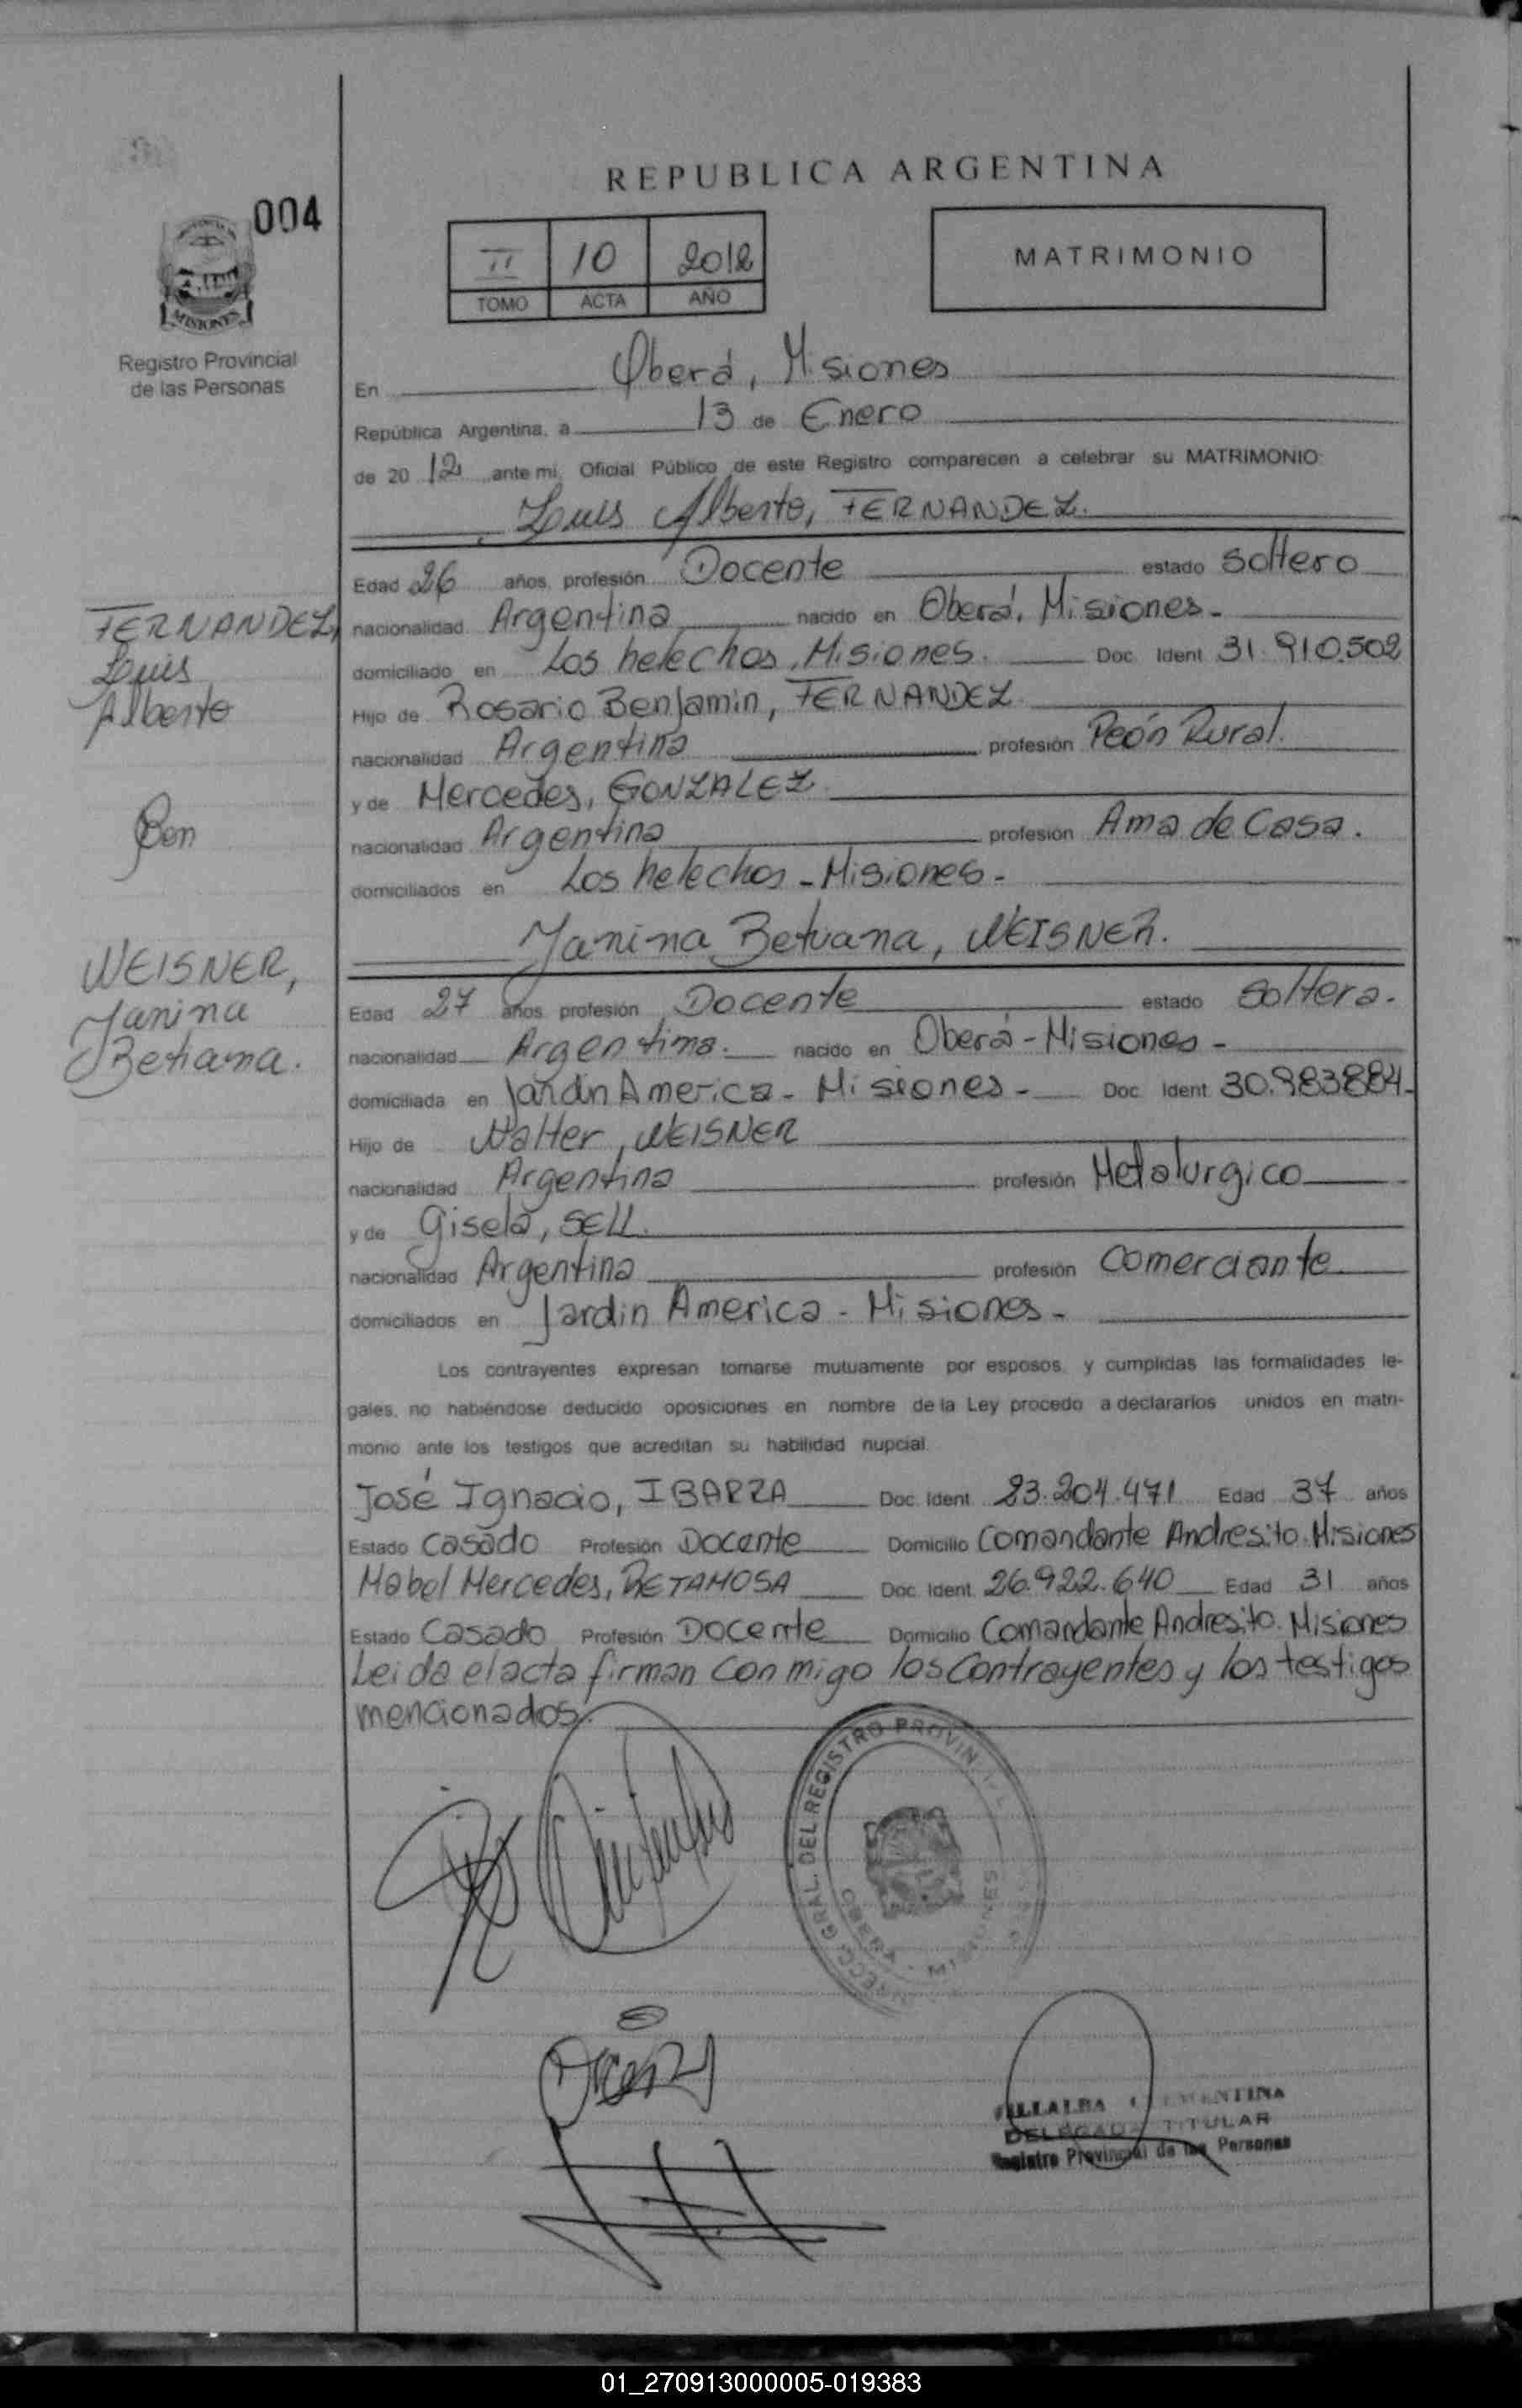 REPUBLICA ARGENTINA
004
II 10 2012
TOMO ACTA AÑO
MATRIMONIO
MISIONES
Registro Provincial
de las Personas
En Oberá, Misiones
República Argentina, a 13 de Enero
de 20 12 ante mi, Oficial Público de este Registro comparecen a celebrar su MATRIMONIO:
Luis Alberto, FERNANDEZ.
Edad 26 años, profesión Docente estado soltero
nacionalidad Argentina nacido en Oberá, Misiones-
domiciliado en Los helechos, Misiones. Doc. Ident 31.910.502
Hijo de Rosario Benjamin, FERNANDEZ
nacionalidad Argentina profesión Peón Rural.
y de Mercedes, GONZALEZ
nacionalidad Argentina profesión Ama de Casa.
domiciliados en Los helechos - Misiones-
FERNANDEZ,
Luis
Alberto
Con
WEISNER,
Yanina
Betiana.
Yanina Betiana, WEISNER.
Edad 27 años profesión Docente estado soltera.
nacionalidad Argentina. nacido en Oberá - Misiones -
domiciliada en Jardin America - Misiones - Doc. Ident 30.983884-
Hijo de Walter, WEISNER
nacionalidad Argentina profesión Metalurgico
y de Gisela, SELL.
nacionalidad Argentina profesión Comerciante
domiciliados en Jardin America - Misiones -
Los contrayentes expresan tomarse mutuamente por esposos, y cumplidas las formalidades le-
gales, no habiéndose deducido oposiciones en nombre de la Ley procedo a declararlos unidos en matri-
monio ante los testigos que acreditan su habilidad nupcial.
José Ignacio, IBARRA Doc. Ident 23.204.471 Edad 37 años
Estado Casado Profesión Docente Domicilio Comandante Andresito. Misiones
Mabel Mercedes, RETAMOSA Doc. Ident. 26.922.640 Edad 31 años
Estado Casado Profesión Docente Domicilio Comandante Andresito. Misiones
Leida el acta firman con migo los Contrayentes y los testigos
mencionados.
GRAL. DEL REGISTRO PROVIN
MISIONES
VILLALBA CLEMENTINA
DELEGADA TITULAR
Registro Provincial de las Personas
01_270913000005-019383